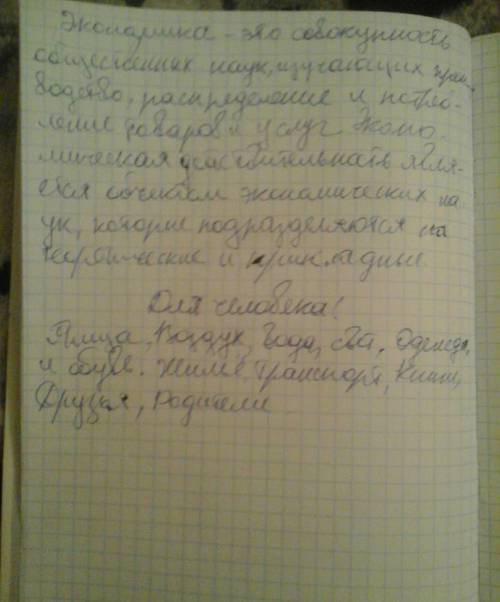 Экономика - это совокупность
общественных наук, изучающих произ
водство, распределение и потреб-
ление товаров и услуг. Эконо-
мическая действительность явля-
ется объектом экономических на
ук, которые подразделяются на
теоретические и прикладные.
Для человека!
Пища, Воздух, Вода, свет, Одежда,
и обувь. Жильё, Транспорт, Книги,
Друзья, Родители